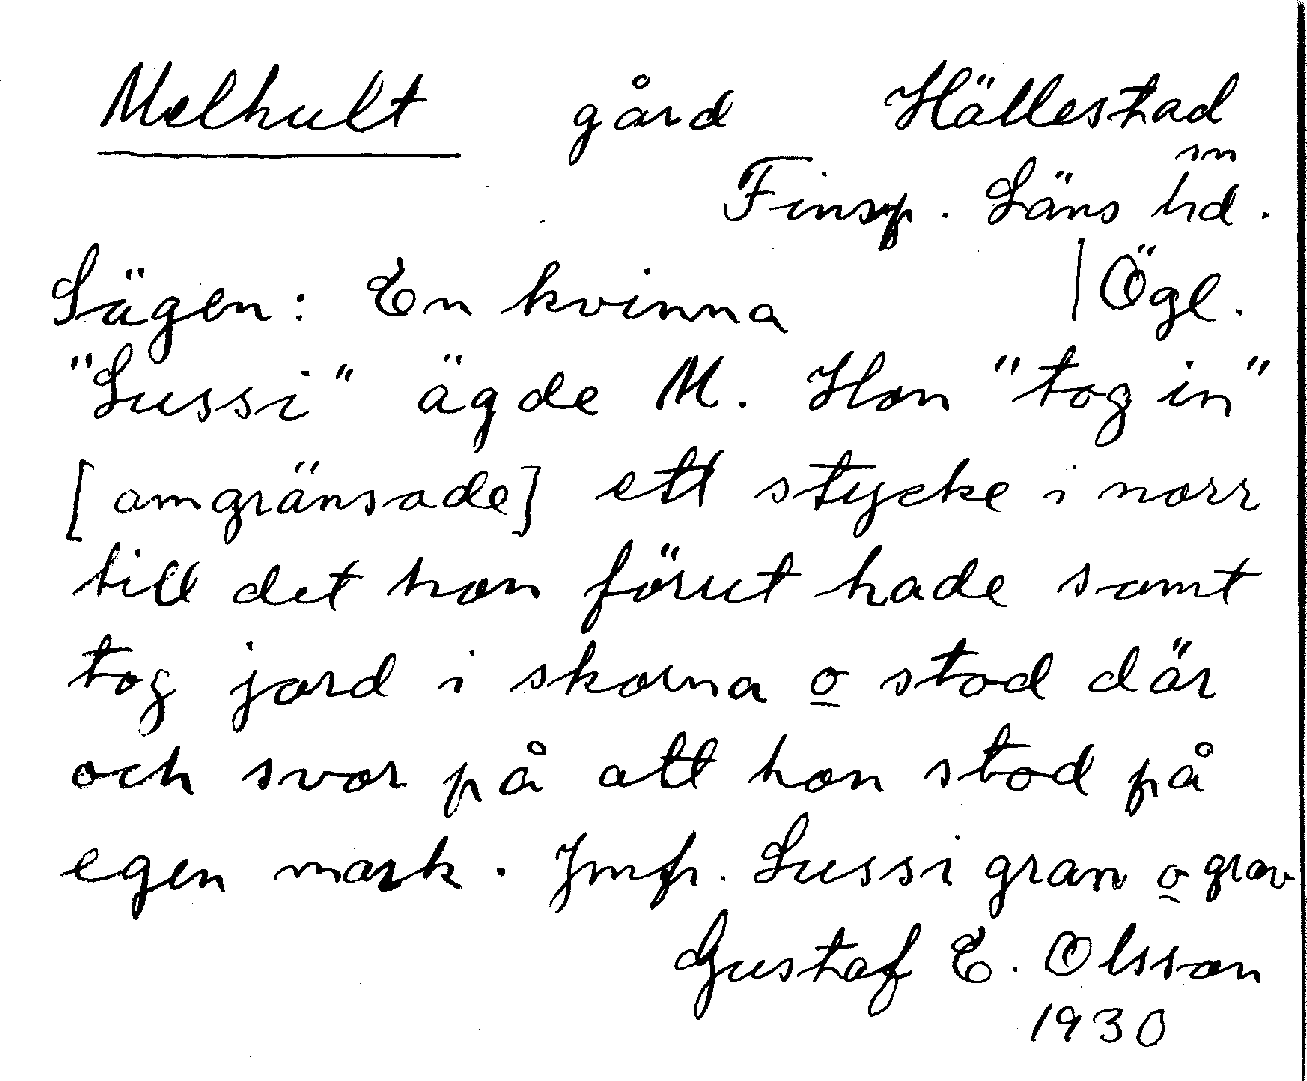 Melhult gård Hällestad
sn
Finsp. Läns hd.
Sägen: En kvinna | Ögl.
"Lussi" ägde M. Hon "tog in"
[omgränsade] ett stycke i norr
till det hon förut hade samt
tog jord i skorna o stod där
och svor på att hon stod på
egen mark. Jmfr. Lussi gran o grav
Gustaf E. Olsson
1930